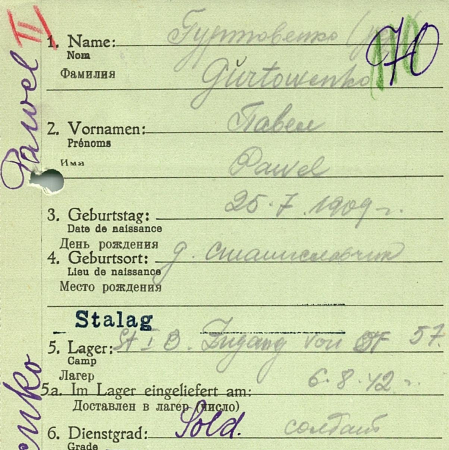 II
70
1. Name: Гуртовенко
Nom
Фамилия Gurtowenko
2. Vornamen: Павел
Prénoms
Имя Pawel
3. Geburtstag: 25.7.1909 г.
Date de naissance
День рождения
4. Geburtsort: д.
Lieu de naissance
Место рождения
Stalag
5. Lager: St I B. Zugang von 57.
Camp
Лагер
5a. Im Lager eingeliefert am: 6.8.42 г.
Доставлен в лагер (число)
6. Dienstgrad: Sold. солдат
Grade
Pawel
enko